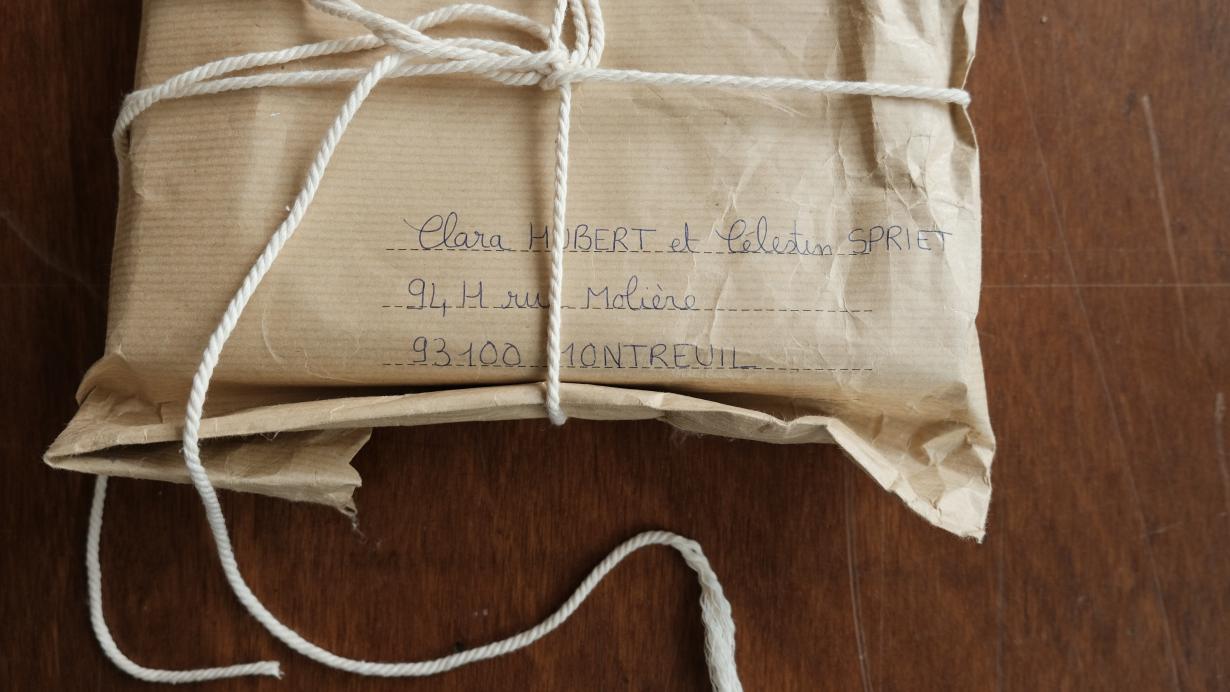 Clara HUBERT et Célestin SPRIET
94 H rue Molière
93100 MONTREUIL